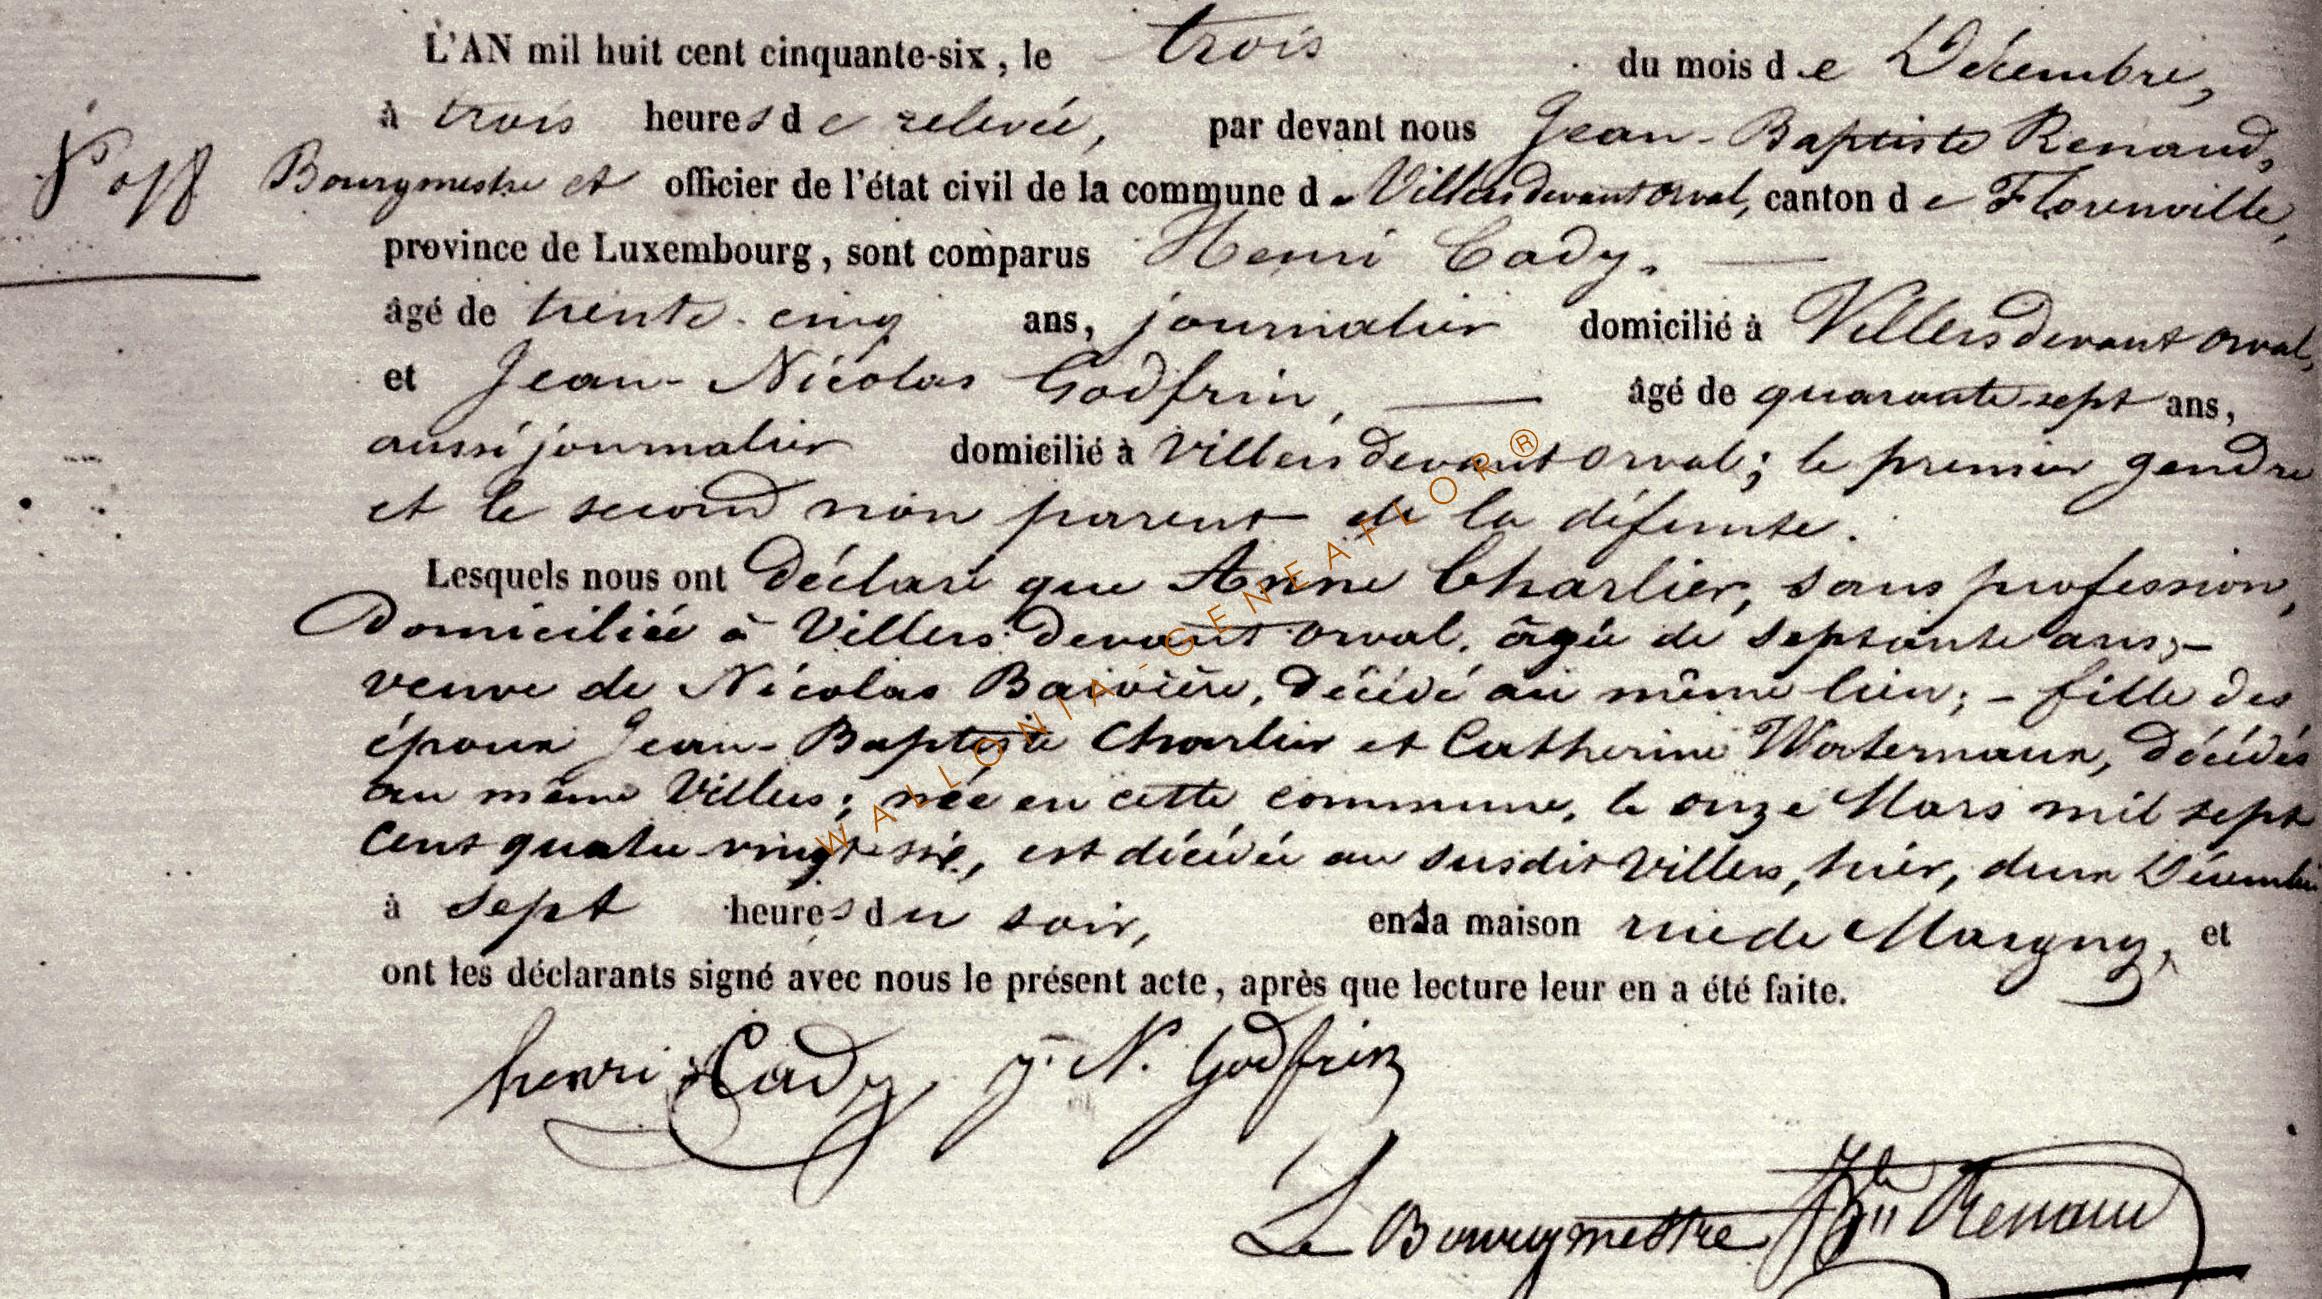 L'AN mil huit cent cinquante-six, le trois du mois de Décembre,
à trois heures de relevée, par devant nous Jean-Baptiste Renaud,
Bourgmestre et officier de l'état civil de la commune de Villers devant Orval, canton de Florenville,
province de Luxembourg, sont comparus Henri Cady. —
âgé de trente-cinq ans, journalier domicilié à Villers devant Orval,
et Jean-Nicolas Godfrin, — âgé de quarante-sept ans,
aussi journalier domicilié à Villers devant Orval; le premier gendre
et le second non parent de la défunte.
Lesquels nous ont déclaré que Anne Charlier, sans profession,
Domiciliée à Villers devant Orval, âgée de septante ans, -
veuve de Nicolas Baivière, décédé au même lieu; - fille des
époux Jean-Baptiste Charlier et Catherine Waternaux, décédés
au même Villers; née en cette commune, le onze Mars mil sept
cent quatre vingt six, est décédée au susdit Villers, hier, deux Décembre
à sept heures du soir, en sa maison rue de Margny, et
ont les déclarants signé avec nous le présent acte, après que lecture leur en a été faite.
henri Cady J. N. Godfrin
Le Bourgmestre Renaud
WALLONIA-GENEAFLOR®